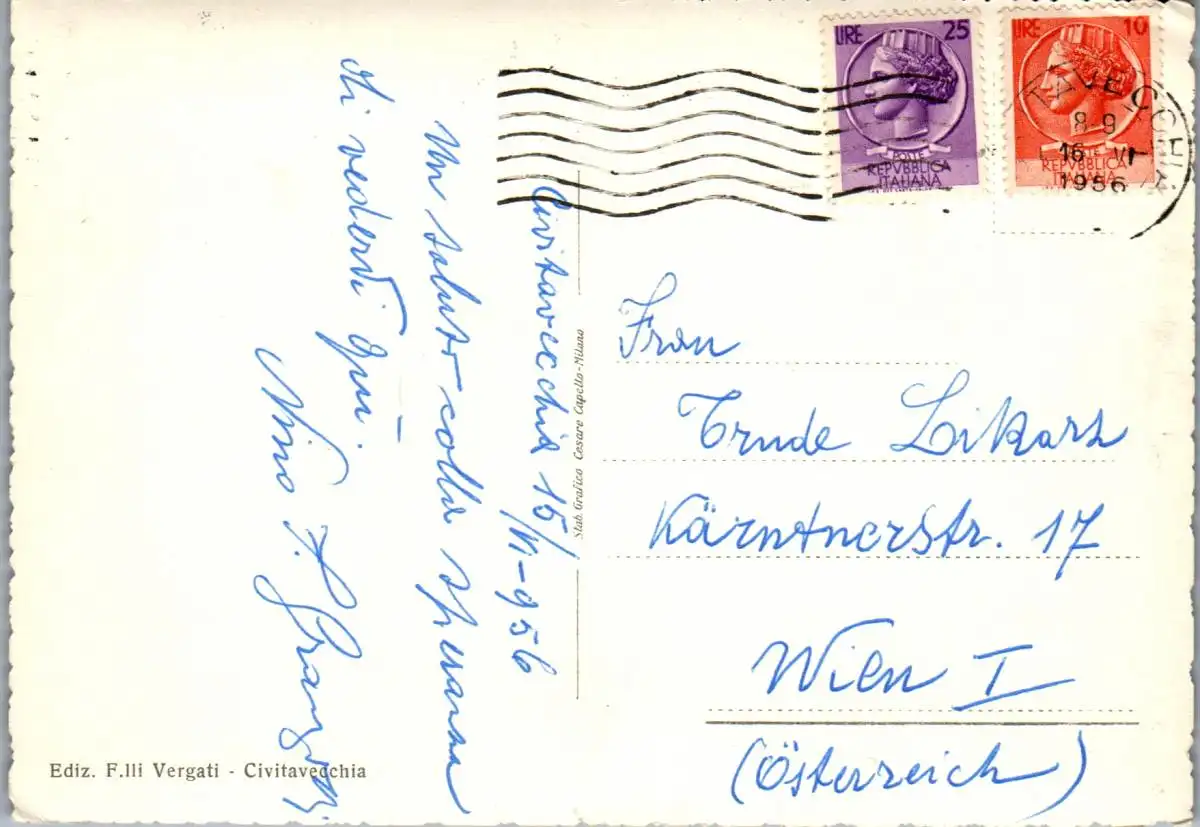 Civitavecchia 15/VI-956
Un saluto colla speranza
di vedervi qui.
Nino F.
LIRE 25
POSTE
REPVBBLICA
ITALIANA
LIRE 10
POSTE
REPVBBLICA
ITALIANA
TAVECCHIA
8-9
16 VI
1956
Stab. Grafico Cesare Capello-Milano
Frau
Trude Likarz
Kärntnerstr. 17
Wien I
(Österreich)
Ediz. F.lli Vergati - Civitavecchia